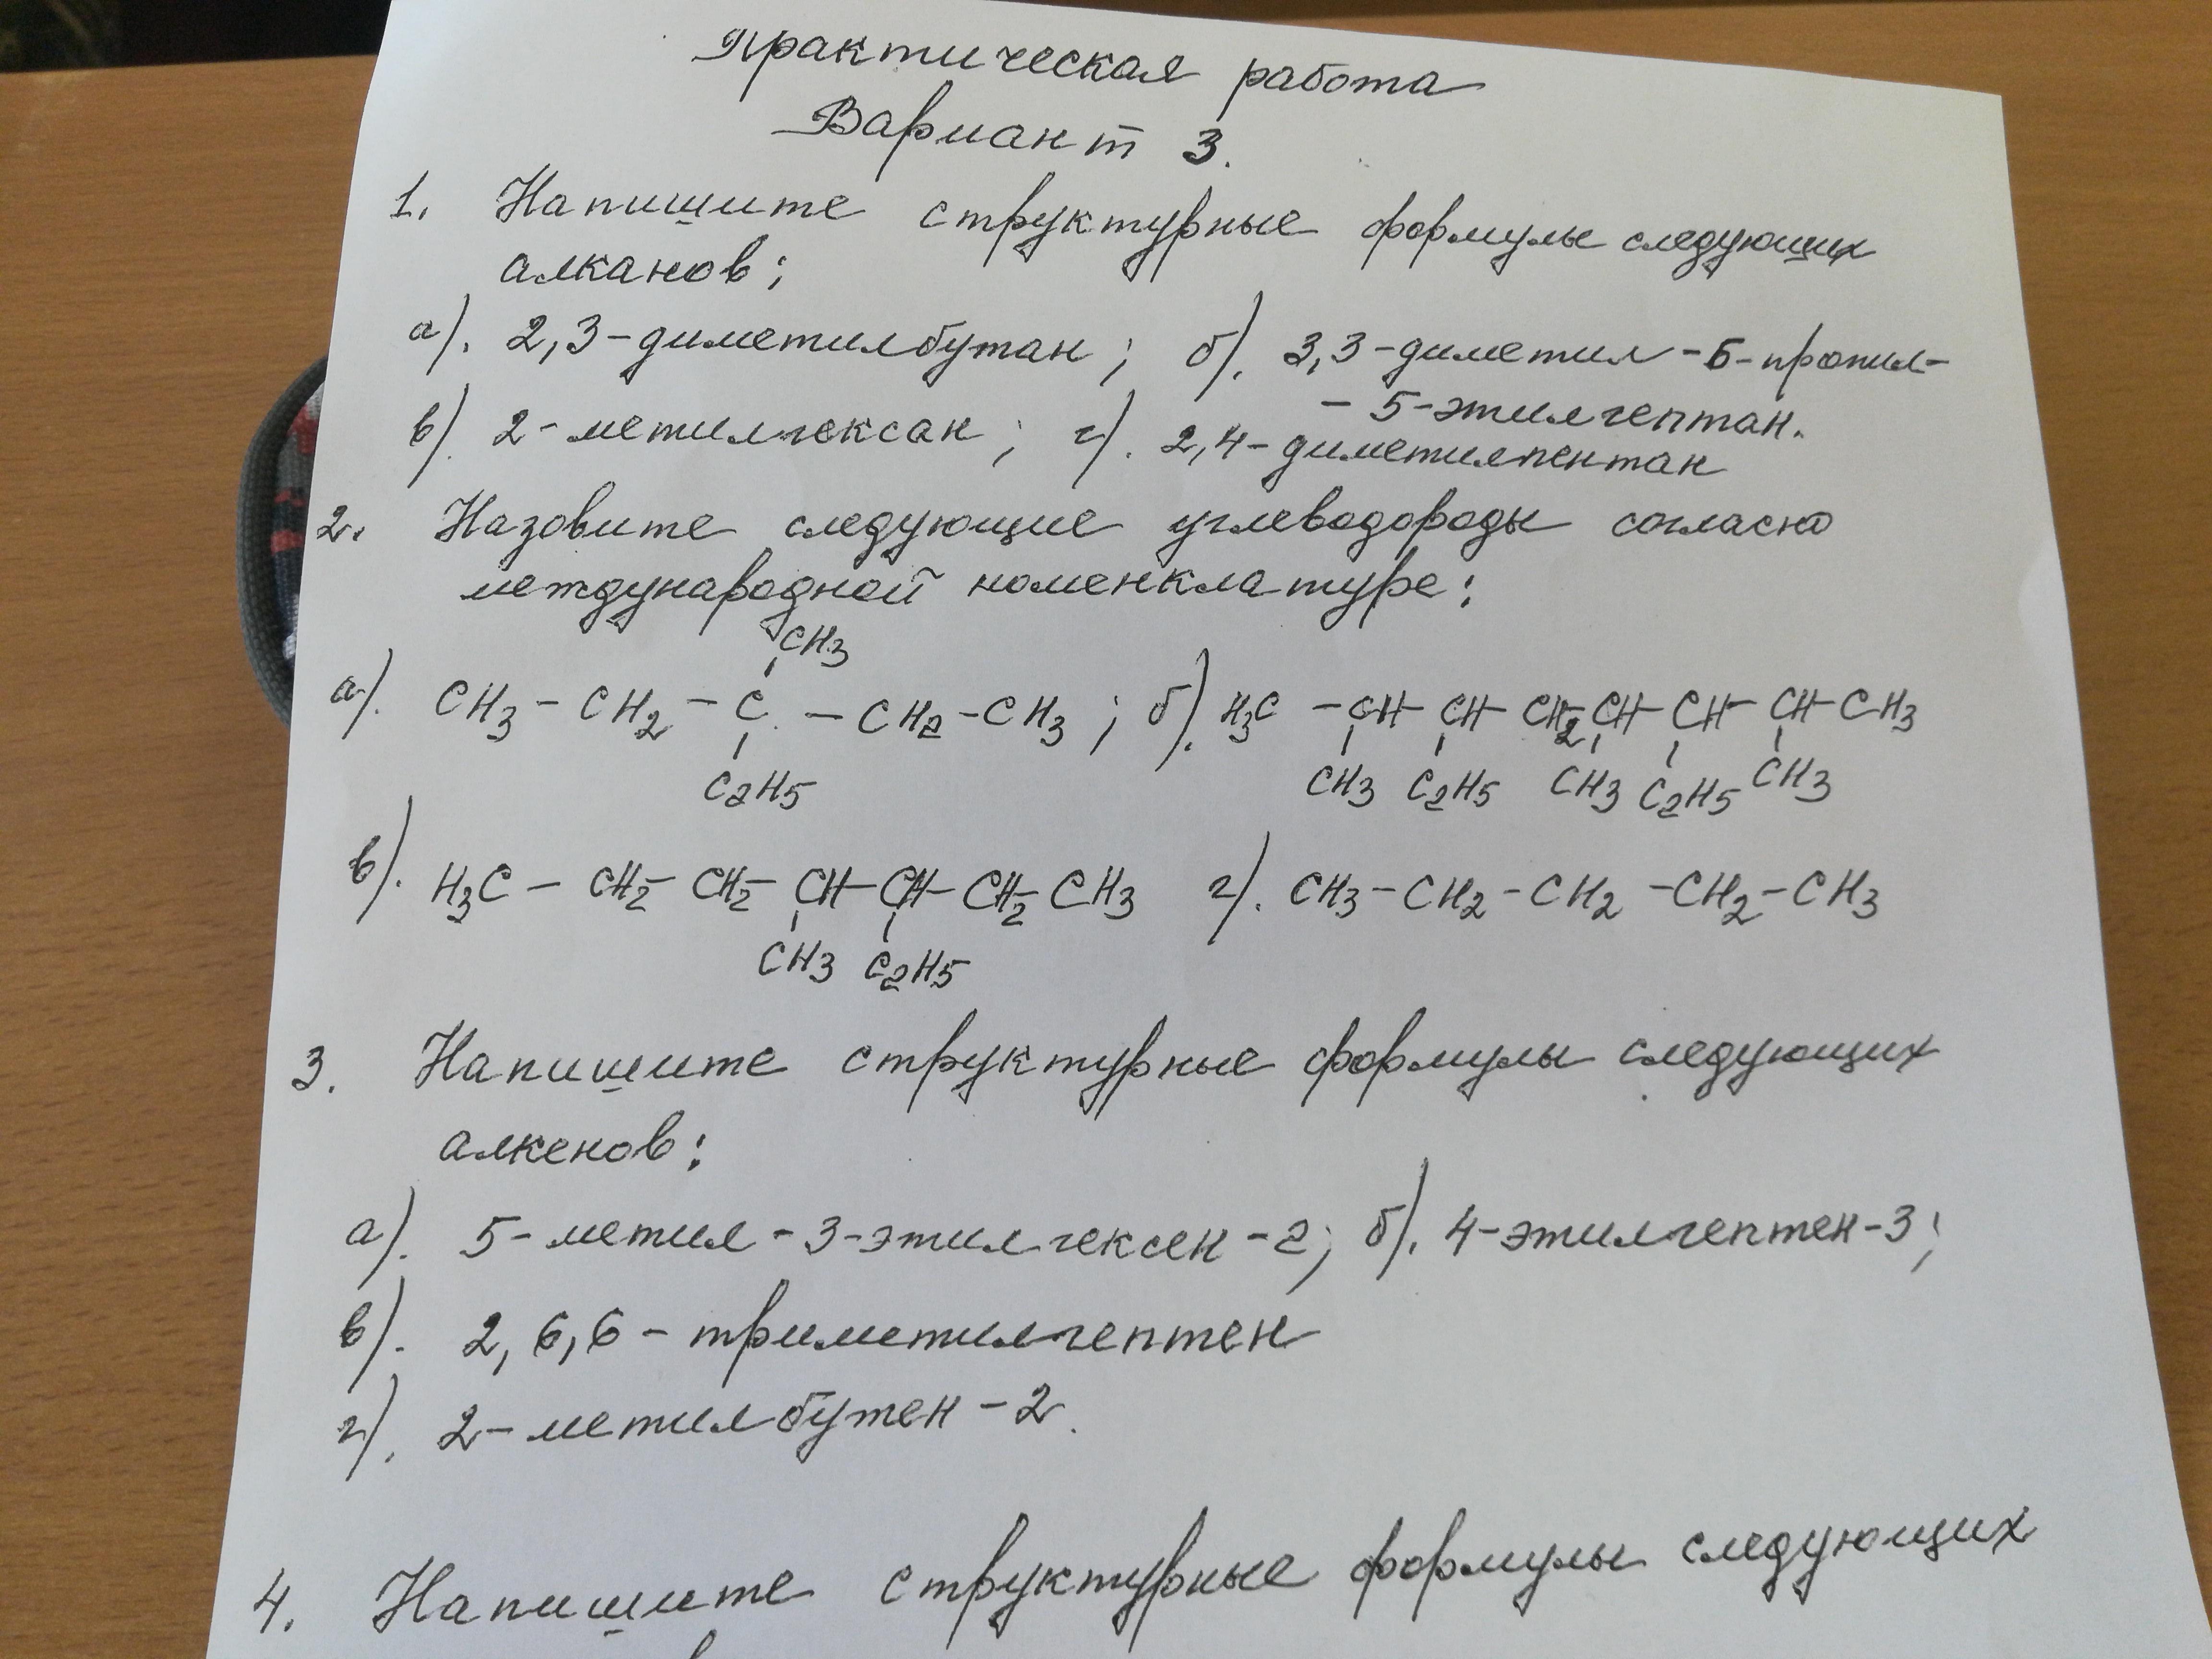 Практическая работа
Вариант 3.
1. Напишите структурные формулы следующих
алканов:
а). 2,3-диметилбутан; б). 3,3-диметил-6-пропил-
-5-этилгептан.
в). 2-метилгексан; г). 2,4-диметилпентан
2. Назовите следующие углеводороды согласно
международной номенклатуре:
CH3
а). CH3-CH2-C-CH2-CH3; б). H3C-CH-CH-CH2-CH-CH-CH-CH3
C2H5 CH3 C2H5 CH3 C2H5 CH3
в). H3C-CH2-CH2-CH-CH-CH2-CH3 г). CH3-CH2-CH2-CH2-CH3
CH3 C2H5
3. Напишите структурные формулы следующих
алкенов:
а). 5-метил-3-этилгексен-2; б). 4-этилгептен-3;
в). 2,6,6-триметилгептен
г). 2-метилбутен-2.
4. Напишите структурные формулы следующих